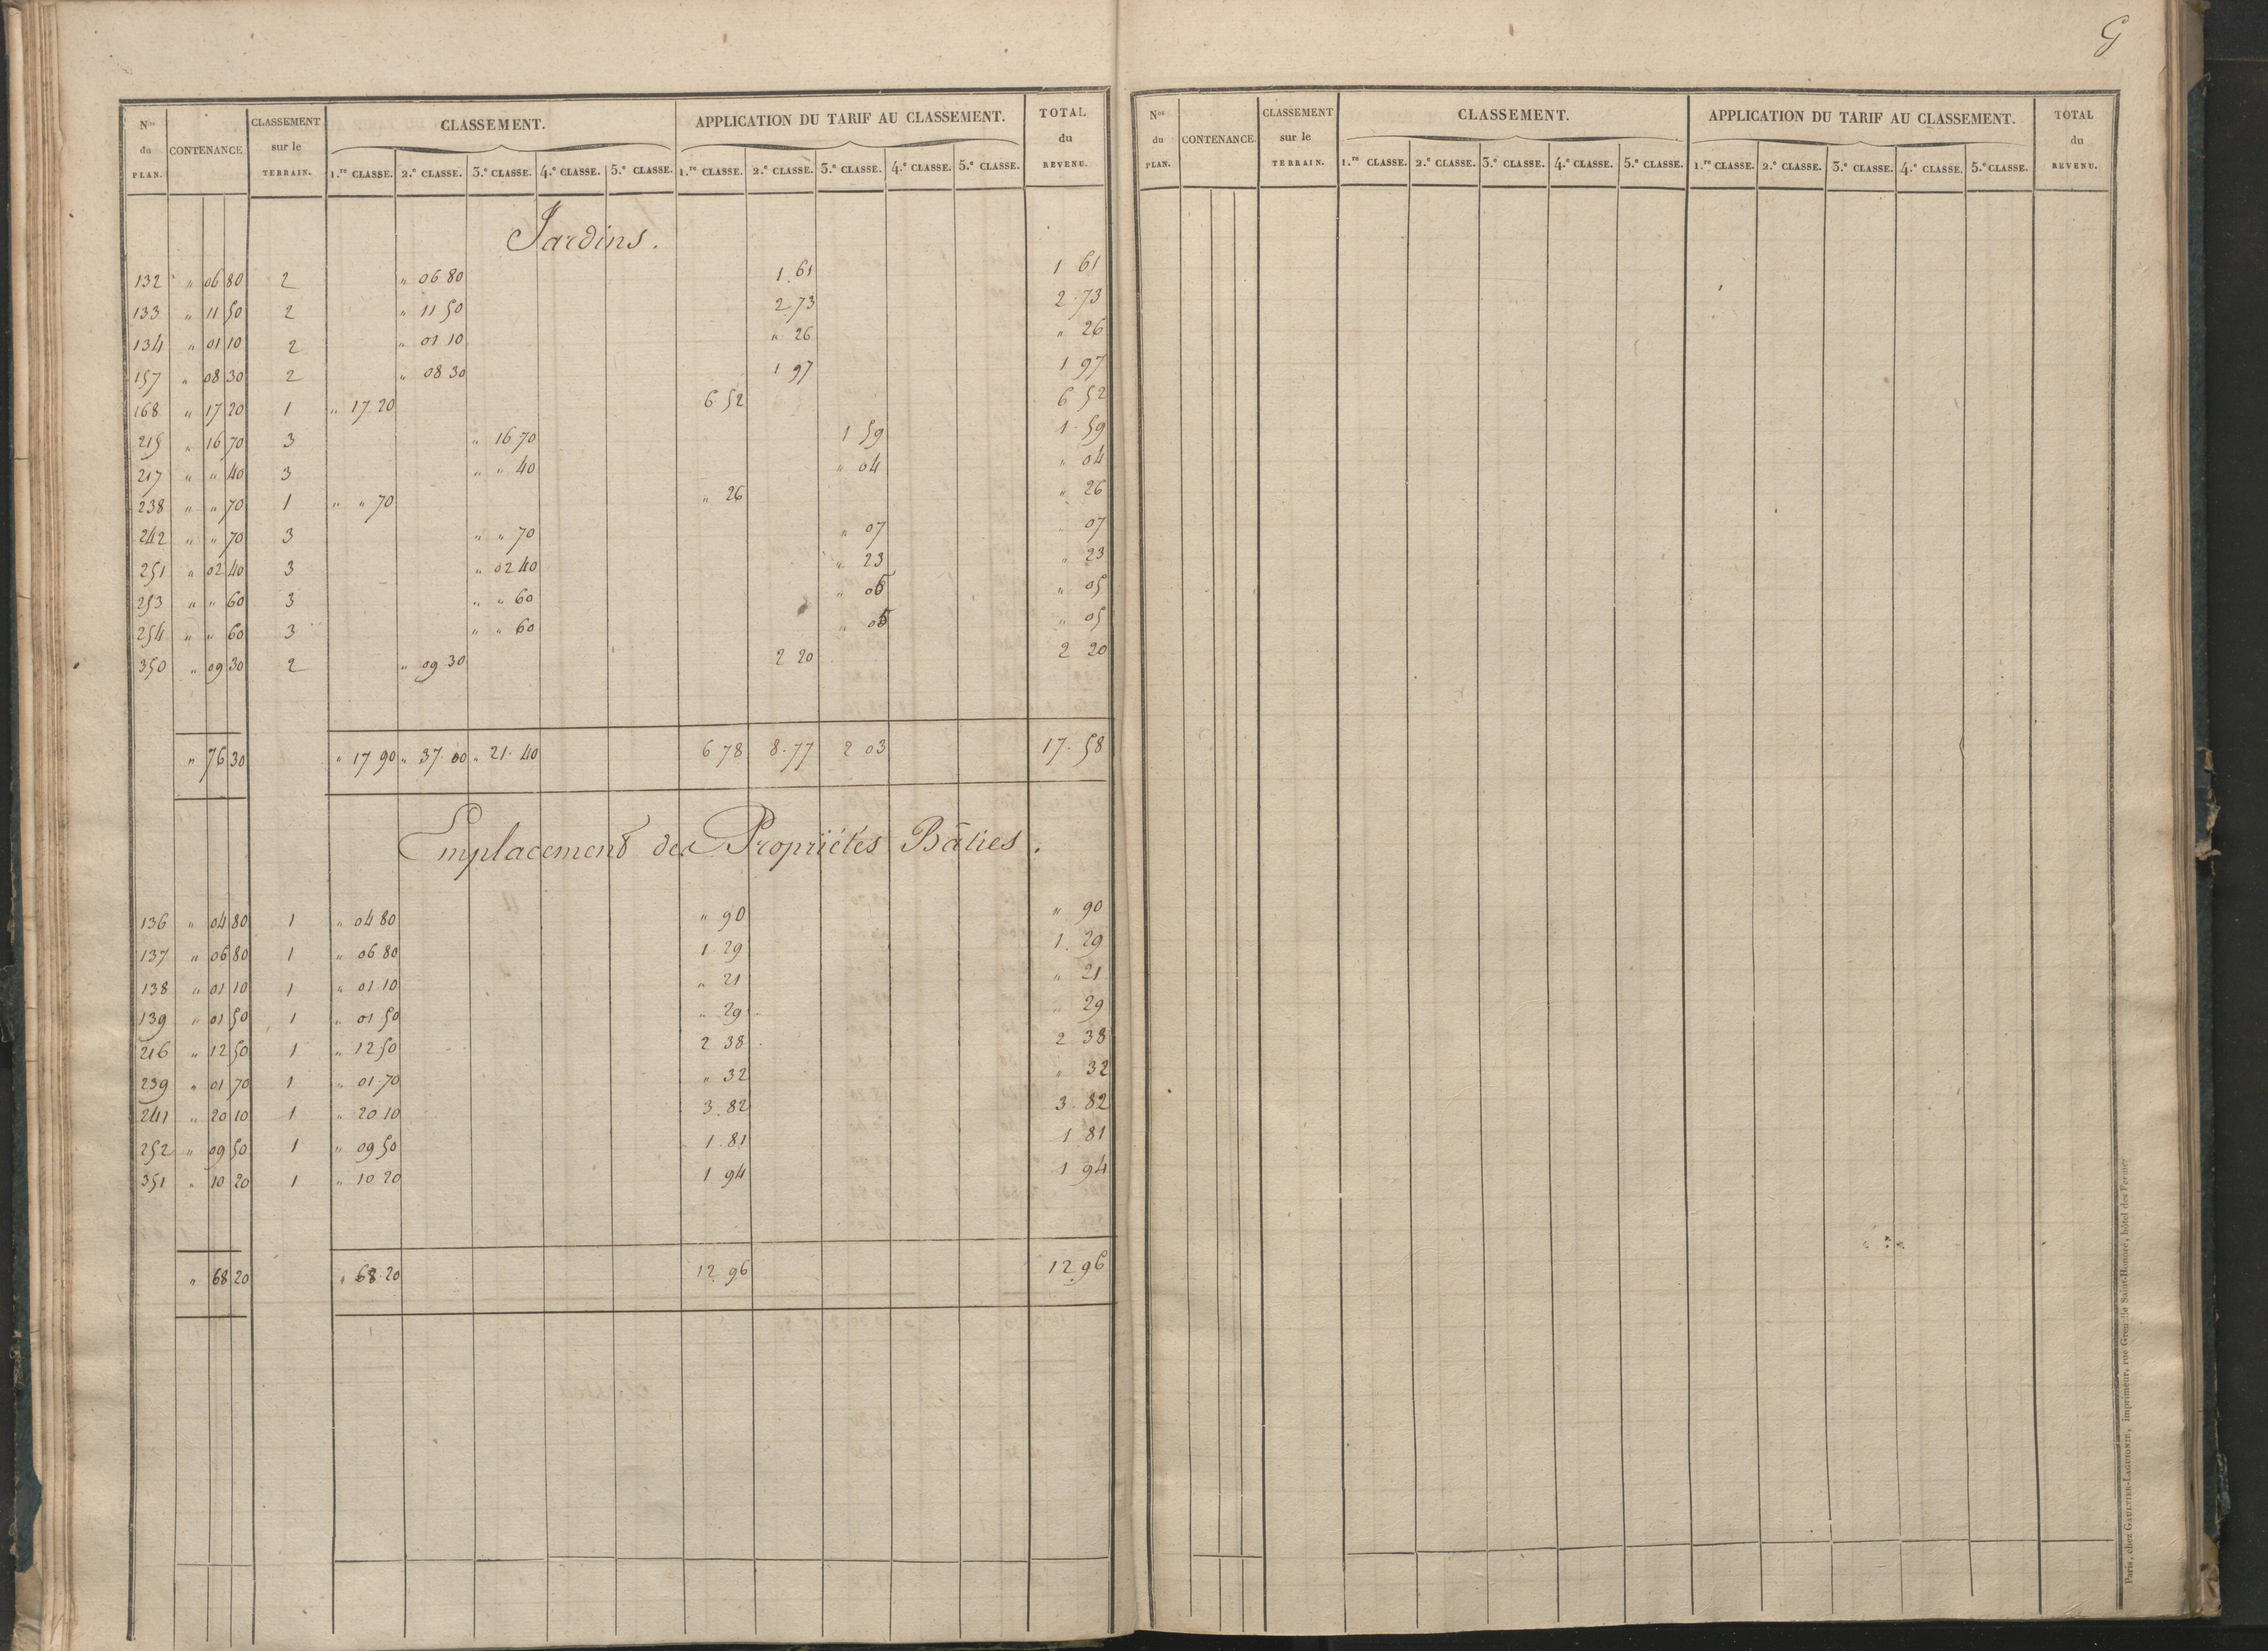 G
N.os du PLAN. CONTENANCE CLASSEMENT sur le TERRAIN. CLASSEMENT. APPLICATION DU TARIF AU CLASSEMENT. TOTAL du REVENU.
1.re CLASSE. 2.e CLASSE. 3.e CLASSE. 4.e CLASSE. 5.e CLASSE. 1.re CLASSE. 2.e CLASSE. 3.e CLASSE. 4.e CLASSE. 5.e CLASSE.
Jardins.
132 " 06 80 2 " 06 80 1. 61 1 61
133 " 11 50 2 " 11 50 2. 73 2. 73
134 " 01 10 2 " 01 10 " 26 " 26
157 " 08 30 2 " 08 30 1 97 1 97
168 " 17 20 1 " 17 20 6 52 6 52
215 " 16 70 3 " 16 70 1 59 1. 59
217 " " 40 3 " " 40 " 04 " 04
238 " " 70 1 " " 70 " 26 " 26
242 " " 70 3 " " 70 " 07 " 07
251 " 02 40 3 " 02 40 " 23 " 23
253 " " 60 3 " " 60 " 05 " 05
254 " " 60 3 " " 60 " 05 " 05
350 " 09 30 2 " 09 30 2 20 2 20
" 76 30 " 17 90 " 37. 00 " 21. 40 6 78 8. 77 2 03 17. 58
Emplacement des Propriétés Bâties.
136 " 04 80 1 " 04 80 " 90 " 90
137 " 06 80 1 " 06 80 1. 29 1. 29
138 " 01 10 1 " 01 10 " 21 " 21
139 " 01 50 1 " 01 50 " 29 " 29
216 " 12 50 1 " 12 50 2 38 2 38
239 " 01 70 1 " 01 70 " 32 " 32
241 " 20 10 1 " 20 10 3. 82 3. 82
252 " 09 50 1 " 09 50 1. 81 1. 81
351 " 10 20 1 " 10 20 1 94 1 94
" 68 20 " 68. 20 12. 96 12. 96
N.os du PLAN. CONTENANCE. CLASSEMENT sur le TERRAIN. CLASSEMENT. APPLICATION DU TARIF AU CLASSEMENT. TOTAL du REVENU.
1.re CLASSE. 2.e CLASSE. 3.e CLASSE. 4.e CLASSE. 5.e CLASSE. 1.re CLASSE. 2.e CLASSE. 3.e CLASSE. 4.e CLASSE. 5.e CLASSE.
Paris, chez GAULTIER-LAGUIONIE, imprimeur, rue Grenelle Saint-Honoré, hôtel des Fermes